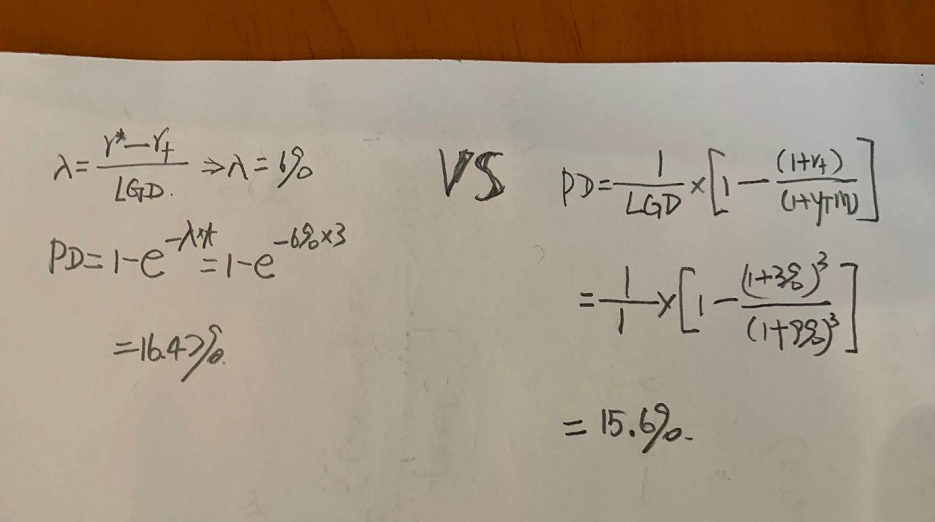 λ = (r* − rf) / LGD. ⇒ λ = 6%
PD = 1 − e^(−λ×t) = 1 − e^(−6%×3)
= 16.47%.
VS
PD = 1/LGD × [1 − (1+rf)/(1+YTM)]
= 1/1 × [1 − (1+3%)^3/(1+9%)^3]
= 15.6%.